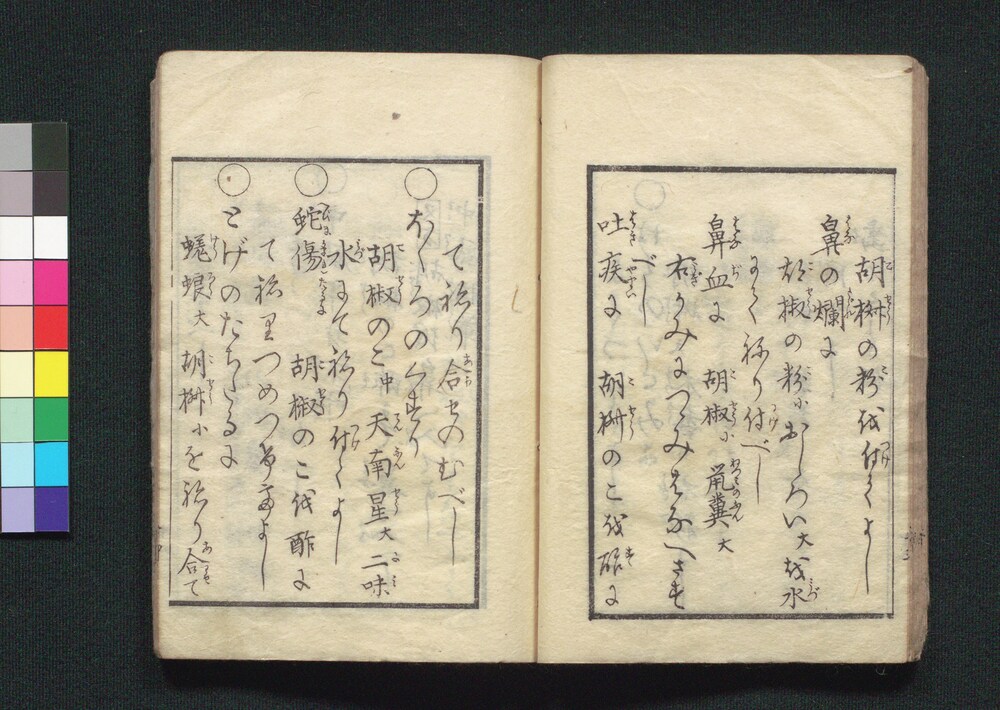 胡椒の粉を付てよし
鼻の爛に
胡椒の粉小おしろい大を水
にてねり付べし
鼻血に　胡椒小　鼠糞大
右かみにつゝみはなへさす
べし
吐疾に　胡椒のこを酢に
てねり合せのむべし
○ほくろのくすり
胡椒のこ中　天南星大　二味
水にてねり付てよし
○蛇傷　胡椒のこを酢に
てねりつめつけてよし
○とげのたちたるに
蟷螂大　胡椒小を ねり合て